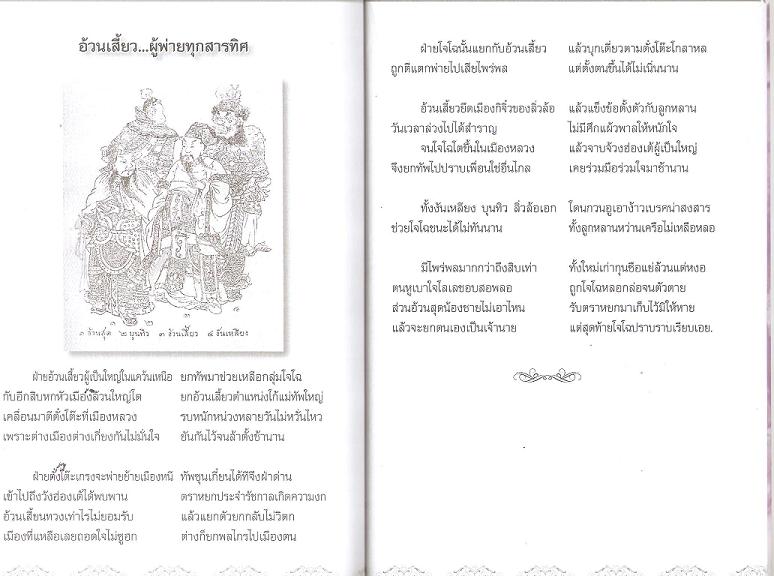 อ้วนเสี้ยว...ผู้พ่ายทุกสารทิศ
๑ อ้วนสุด ๒ บุนทิว ๓ อ้วนเสี้ยว ๔ งันเหลียง
ฝ่ายอ้วนเสี้ยวผู้เป็นใหญ่ในแคว้นเหนือ ยกทัพมาช่วยเหลือกลุ่มโจโฉ
กับอีกสิบหกหัวเมืองล้วนใหญ่โต ยกอ้วนเสี้ยวตำแหน่งโก้แม่ทัพใหญ่
เคลื่อนมาตีตั๋งโต๊ะที่เมืองหลวง รบหนักหน่วงหลายวันไม่หวั่นไหว
เพราะต่างเมืองต่างเกี่ยงกันไม่มั่นใจ ยันกันไว้จนล้าตั้งช้านาน
ฝ่ายตั๋งโต๊ะเกรงจะพ่ายย้ายเมืองหนี ทัพซุนเกี๋ยนได้ทีจึงฝ่าด่าน
เข้าไปถึงวังฮ่องเต้ได้พบพาน ตราหยกประจำรัชกาลเกิดความงก
อ้วนเสี้ยนทวงเท่าไรไม่ยอมรับ แล้วแยกตัวยกกลับไม่วิตก
เมืองที่เหลือเลยถอดใจไม่ชูฮก ต่างก็ยกพลไกรไปเมืองตน
ฝ่ายโจโฉนั้นแยกกับอ้วนเสี้ยว แล้วบุกเดี่ยวตามตั๋งโต๊ะโกลาหล
ถูกตีแตกพ่ายไปเสียไพร่พล แต่ตั้งตนขึ้นได้ไม่เนิ่นนาน
อ้วนเสี้ยวยึดเมืองกิจิ๋วของลิ่วล้อ แล้วแข็งข้อตั้งตัวกับลูกหลาน
วันเวลาล่วงไปได้สำราญ ไม่มีศึกแผ้วพาลให้หนักใจ
จนโจโฉโตขึ้นในเมืองหลวง แล้วจาบจ้วงฮ่องเต้ผู้เป็นใหญ่
จึงยกทัพไปปราบเพื่อนใช่อื่นไกล เคยร่วมมือร่วมใจมาช้านาน
ทั้งงันเหลียง บุนทิว ลิ่วล้อเอก โดนกวนอูเอาง้าวเบรคน่าสงสาร
ช่วยโจโฉชนะได้ไม่ทันนาน ทั้งลูกหลานหว่านเครือไม่เหลือหลอ
มีไพร่พลมากกว่าถึงสิบเท่า ทั้งใหม่เก่ากุนซือแย่ล้วนแต่หงอ
ตนหูเบาใจโลเลชอบสอพลอ ถูกโจโฉหลอกล่อจนตัวตาย
ส่วนอ้วนสุดน้องชายไม่เอาไหน รับตราหยกมาเก็บไว้มิให้หาย
แล้วจะยกตนเองเป็นเจ้านาย แต่สุดท้ายโจโฉปราบราบเรียบเอย.